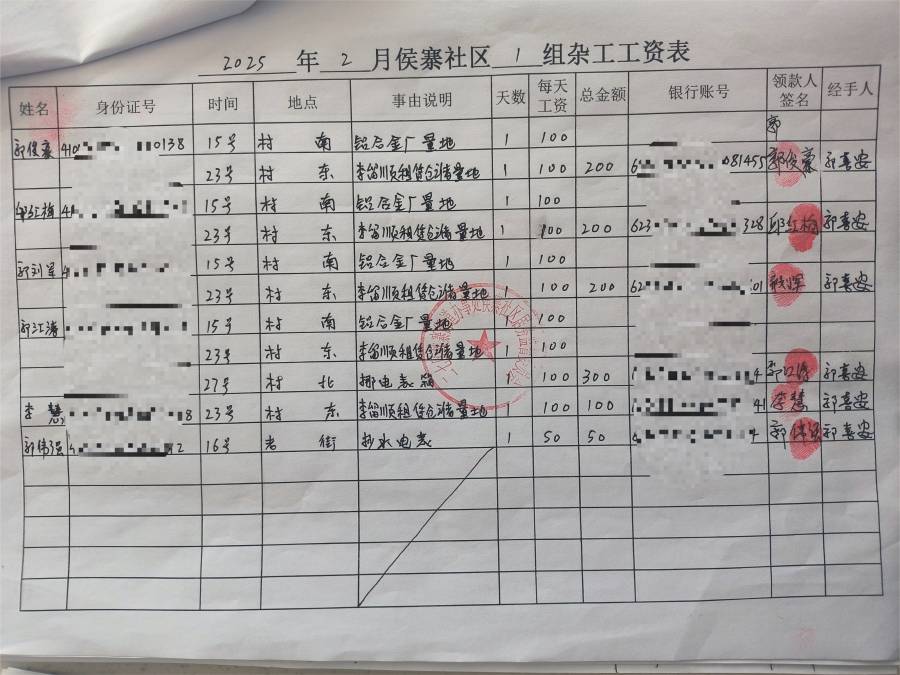 2025 年 2 月侯寨社区 1 组杂工工资表
姓名 身份证号 时间 地点 事由说明 天数 每天工资 总金额 银行账号 领款人签名 经手人
郭
郭俊豪 410 0138 15号 村 南 铝合金厂量地 1 100
23号 村 东 李留顺租赁仓储量地 1 100 200 6 081455 郭俊豪 郭喜安
邱红梅 4 15号 村 南 铝合金厂量地 1 100
23号 村 东 李留顺租赁仓储量地 1 100 200 623 328 邱红梅 郭喜安
郭刘军 4 15号 村 南 铝合金厂量地 1 100
23号 村 东 李留顺租赁仓储量地 1 100 200 62 01 郭喜安
郭江涛 15号 村 南 铝合金厂量地 1 100
23号 村 东 李留顺租赁仓储量地 1 100
27号 村 北 挪电表箱 1 100 300 4 郭江涛 郭喜安
李慧 8 23号 村 东 李留顺租赁仓储量地 1 100 100 41 李慧 郭喜安
郭伟强 2 16号 老 街 抄水电表 1 50 50 6 4 郭伟强 郭喜安